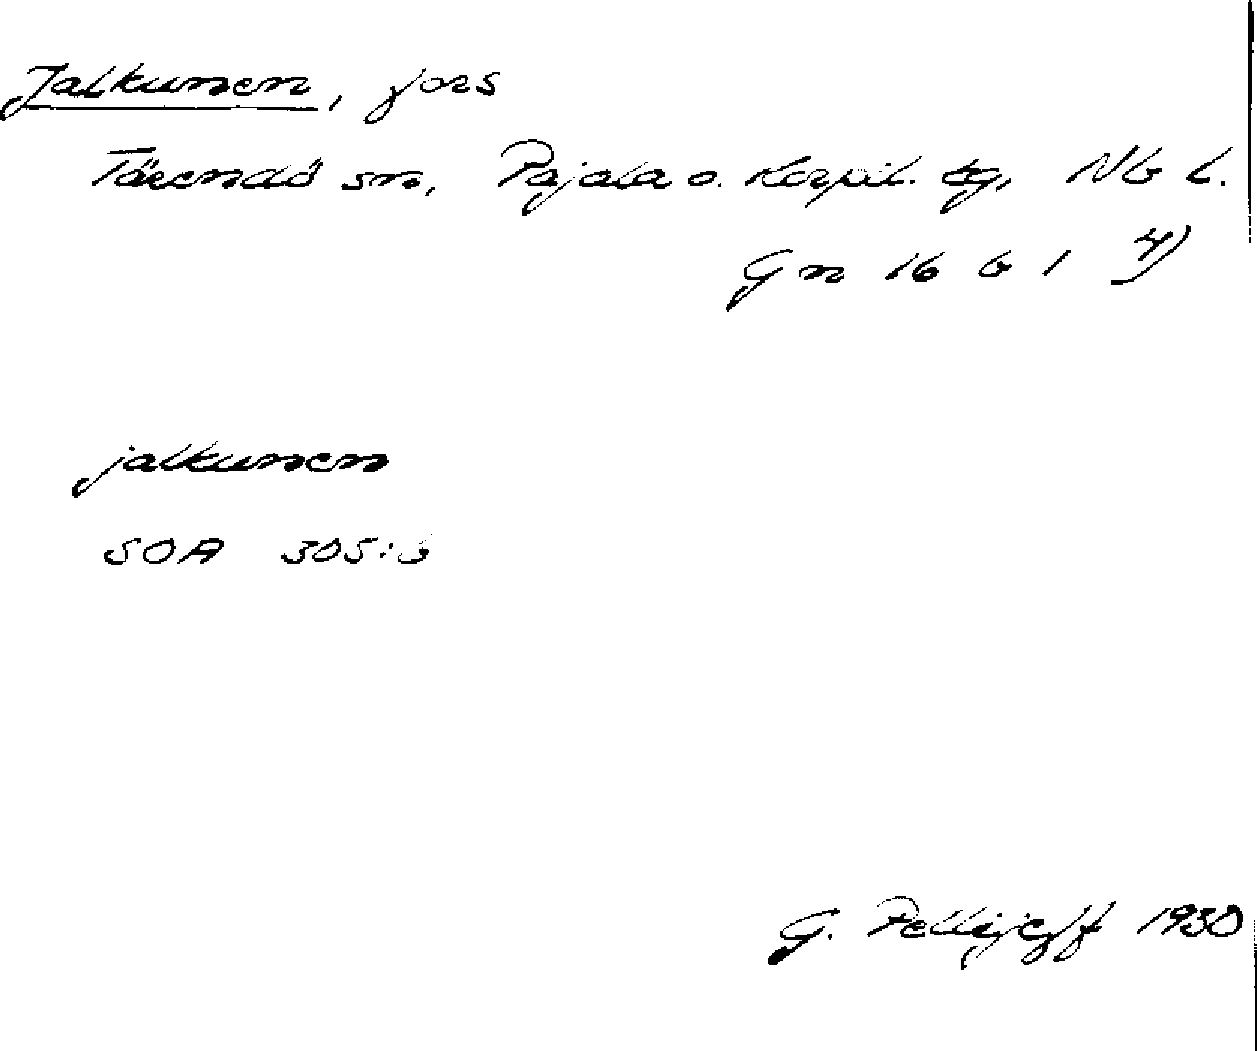 Jalkunen, fors
Tärendö sn, Pajala o. Korpil. tg, Nb l.
Gn 16 b 1 4)
jalkunen
SOA 305:3
G. Pellijeff 1930